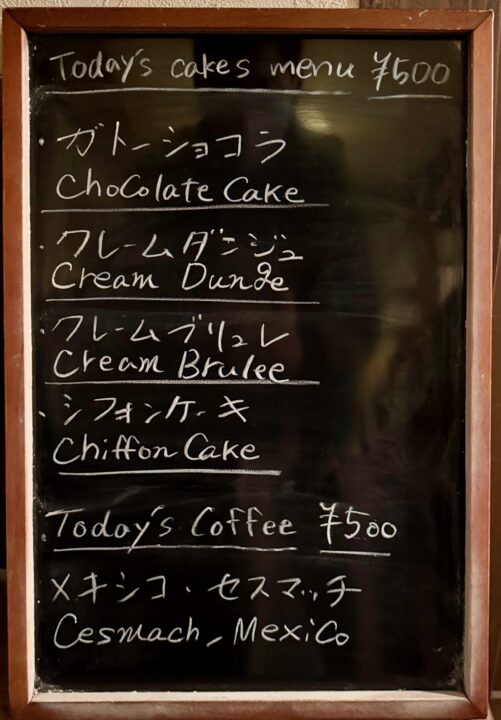 Today's cakes menu ¥500
・ガトーショコラ
Chocolate Cake
・クレームダンジュ
Cream Dunge
・クレームブリュレ
Cream Brulee
・シフォンケーキ
Chiffon Cake
Today's Coffee ¥500
メキシコ・セスマッチ
Cesmach, Mexico